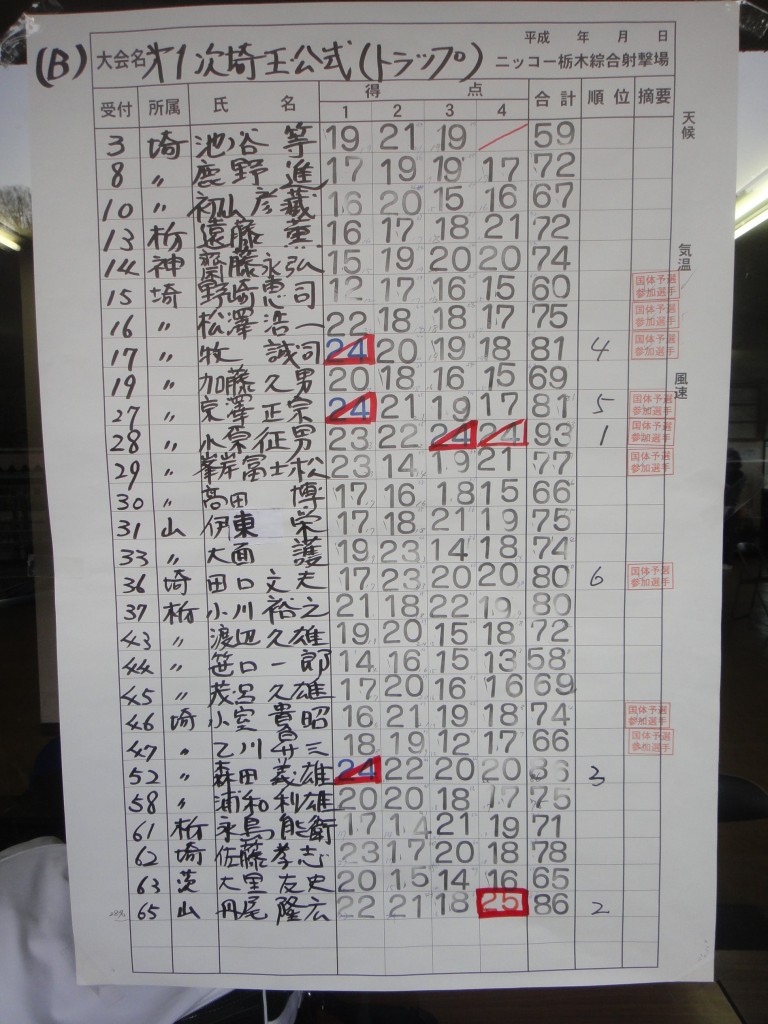 平成 年 月 日
(B) 大会名 第1次埼玉公式(トラップ) ニッコー栃木綜合射撃場
受付 所属 氏 名 得 点 合計 順位 摘要
1 2 3 4
天候
3 埼 池谷 等 19 21 19 59
8 〃 鹿野 進 17 19 19 17 72
10 〃 初山 彦蔵 16 20 15 16 67
13 栃 遠藤 16 17 18 21 72
14 神 齋藤 永弘 15 19 20 20 74
気温
15 埼 野崎 恵司 12 17 16 15 60 国体予選参加選手
16 〃 松澤 浩一 22 18 18 17 75 国体予選参加選手
17 〃 牧 誠司 24 20 19 18 81 4 国体予選参加選手
19 〃 加藤 久男 20 18 16 15 69
風速
27 〃 京澤 正宗 24 21 19 17 81 5 国体予選参加選手
28 〃 小原 征男 23 22 24 24 93 1 国体予選参加選手
29 〃 峯岸 冨士松 23 14 19 21 77 国体予選参加選手
30 〃 高田 博 17 16 18 15 66
31 山 伊東 栄 17 18 21 19 75
33 〃 大面 護 19 23 14 18 74
36 埼 田口 文夫 17 23 20 20 80 6 国体予選参加選手
37 栃 小川 裕之 21 18 22 19 80
43 〃 渡辺 久雄 19 20 15 18 72
44 〃 笹口 一郎 14 16 15 13 58
45 〃 茂呂 久雄 17 20 16 16 69
46 埼 小室 貴昭 16 21 19 18 74 国体予選参加選手
47 〃 乙川 三 18 19 12 17 66 国体予選参加選手
52 〃 森田 義雄 24 22 20 20 86 3
58 〃 浦和 利雄 20 20 18 17 75
61 栃 永島 能衛 17 14 21 19 71
62 埼 佐藤 孝志 23 17 20 18 78
63 茨 大里 友史 20 15 14 16 65
65 山 丹尾 隆広 22 21 18 25 86 2